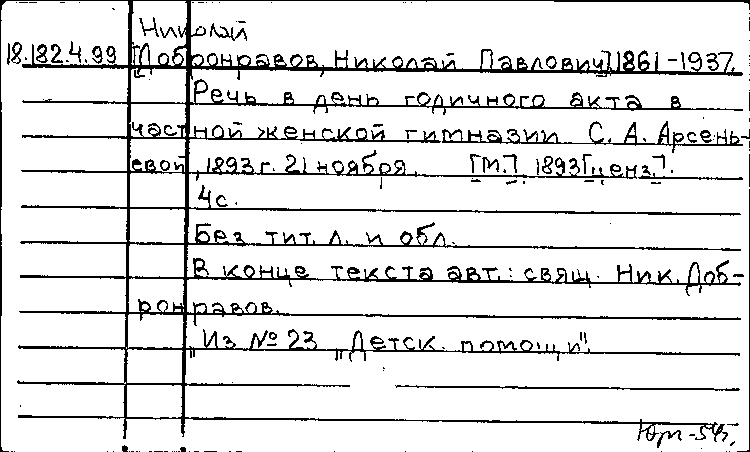 Николай
18.182.4.99 [Добронравов, Николай Павлович] 1861-1937.
Речь в день годичного акта в
частной женской гимназии С. А. Арсень-
евой, 1893 г. 21 ноября. [М.], 1893 [ценз.].
4с.
Без тит. л. и обл.
В конце текста авт.: свящ. Ник. Доб-
ронравов.
"Из № 23 „Детск. помощи".